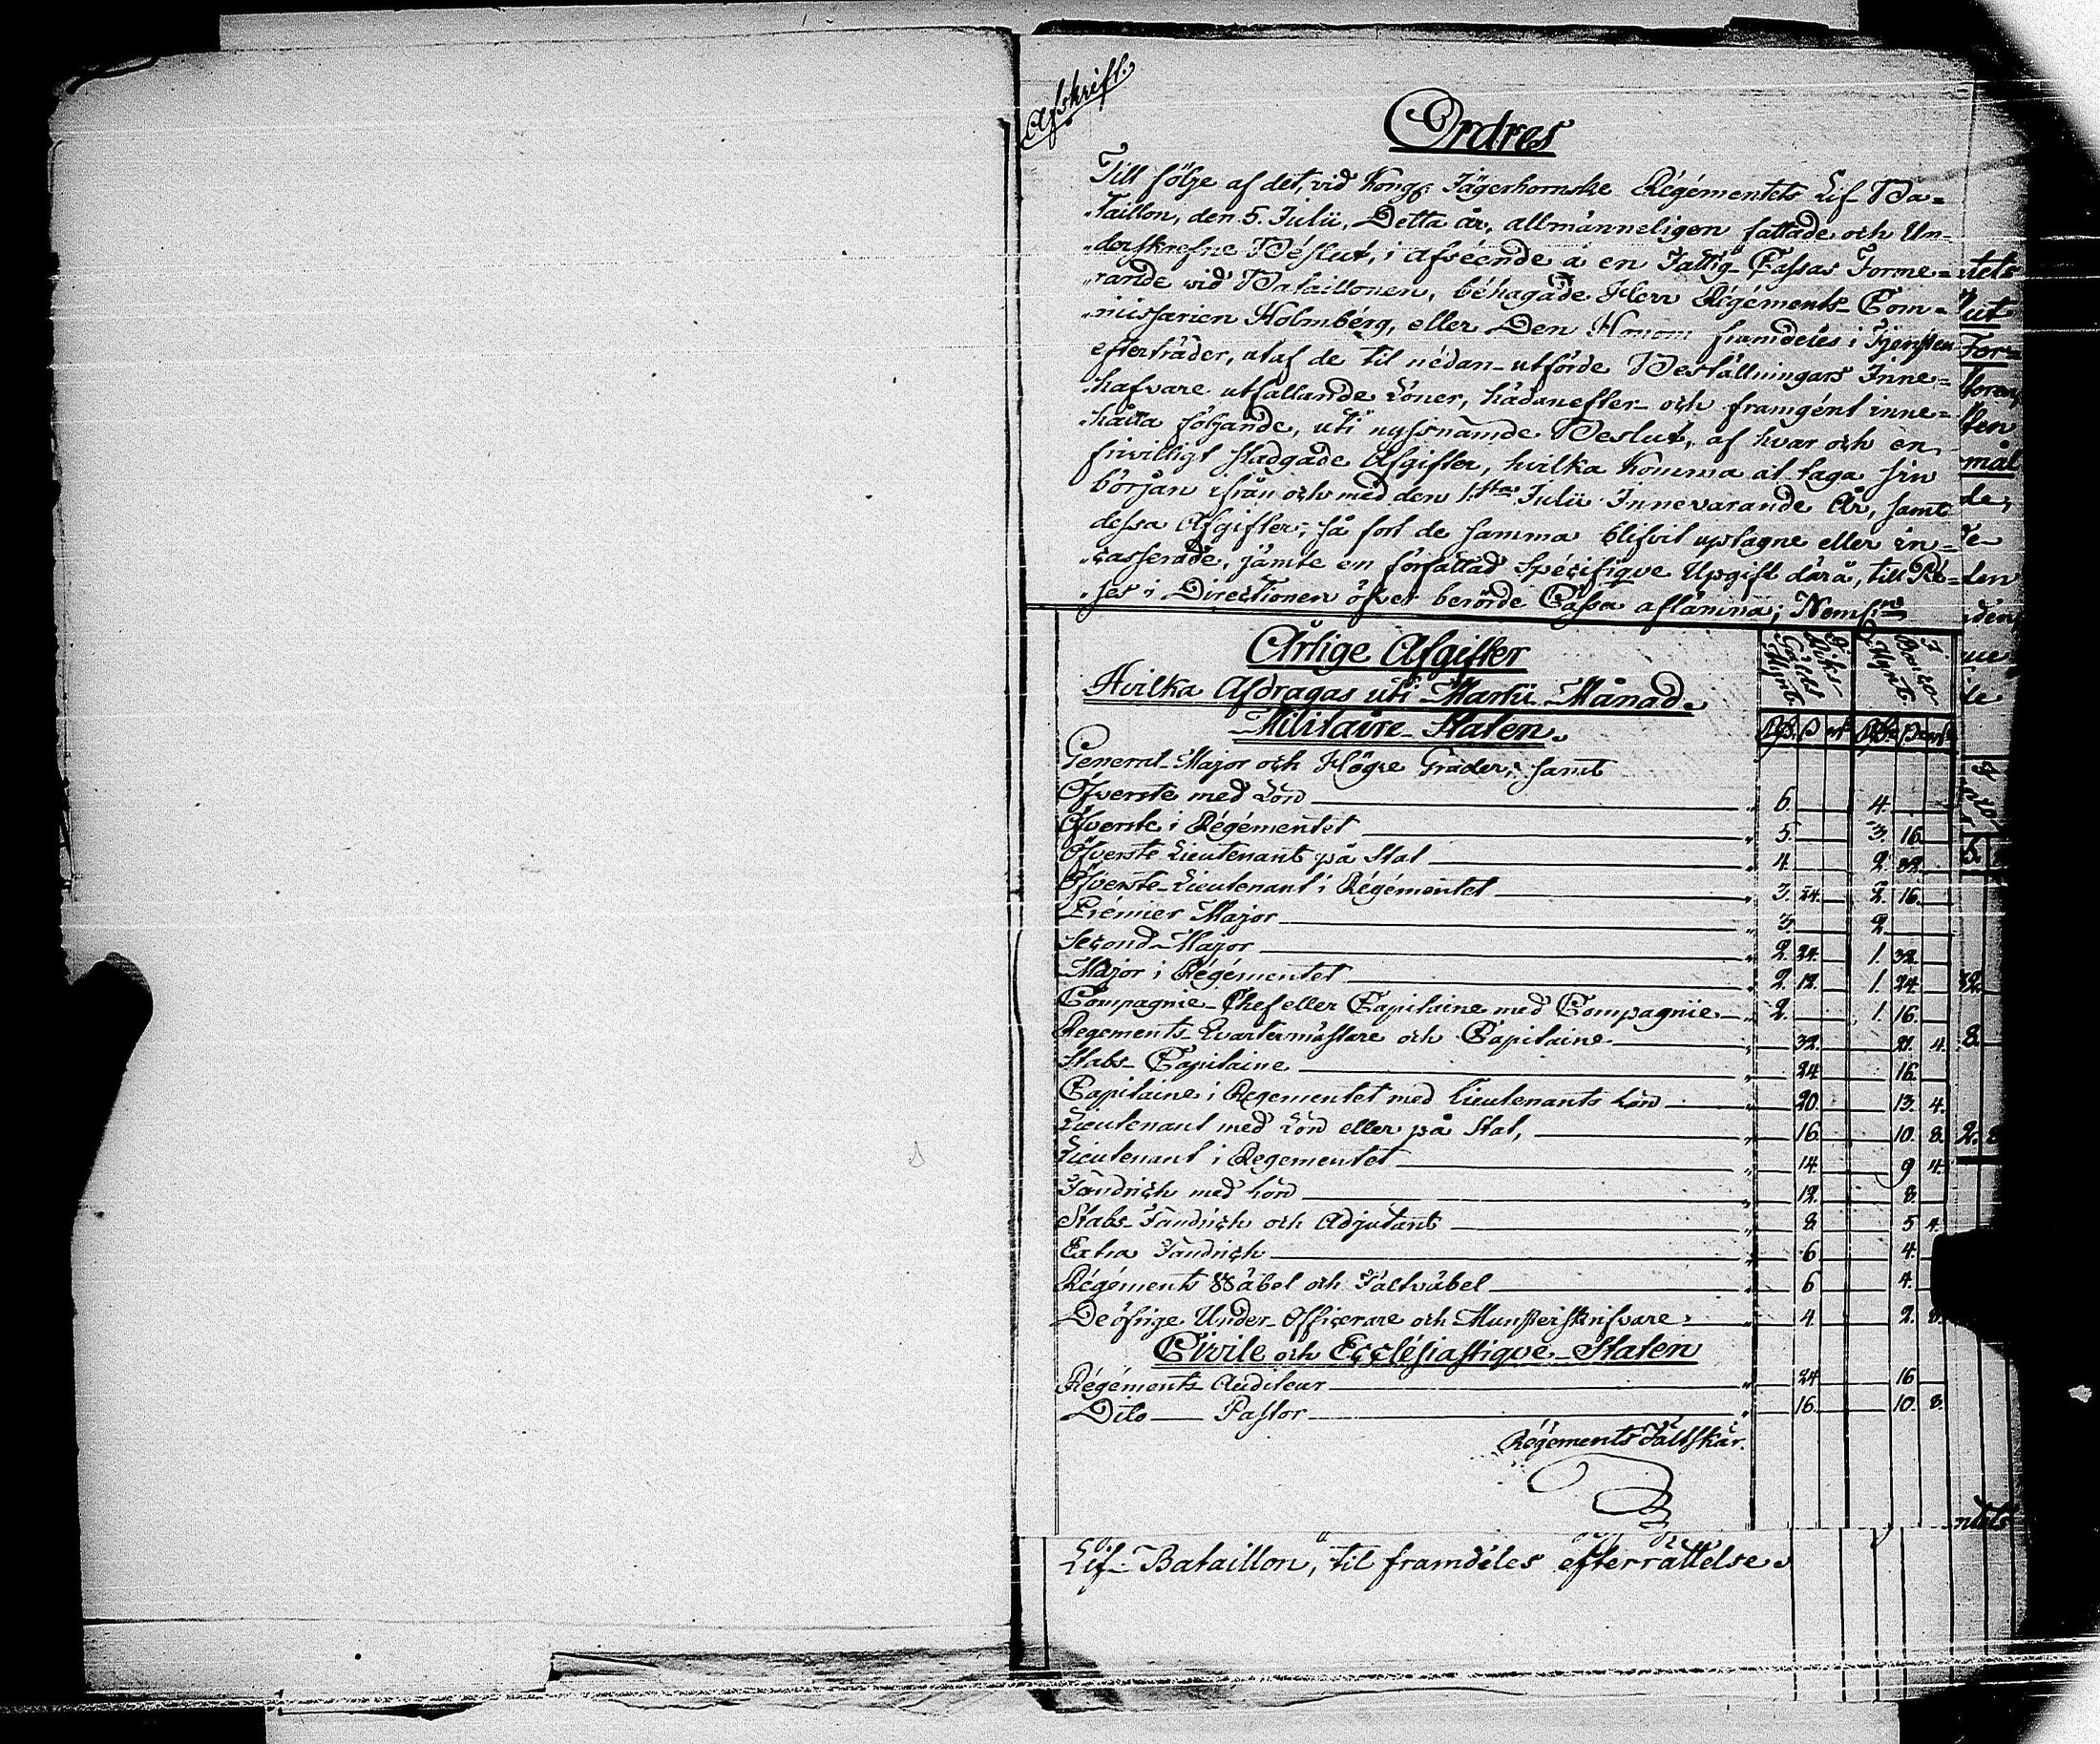 Afskrift.
Ordres
Till följe af det, vid Kongl. Jägerhornske Régémentets Lif-Ba=
taillon, den 5. Julii, Detta år, allmänneligen fattade och Un=
derskrefne Béslut, i afséende å en Fattig-Cassas Forme=
rande vid Bataillonen, béhagade Herr Régéments-Com=
missarien Holmbérg, eller Den Honom framdeles i Tjensten
efterträder, at af de til nédan-utförde Beställningars Inne=
hafvare utfallande Löner, hädanefter och framgént inne=
hålla följande, uti nyssnämde Beslut, af hvar och en
frivilligt stadgade Afgifter, hvilka komma at taga sin
början ifrån och med den 1.sta Julii Innevarande År, samt
dessa Afgifter, så fort de samma blifvit uptagne eller in=
casserade, jämte en författad Spécifique Upgift därå, till Ré=
ses i Directionen öfver berörde Cassa aflämna; Neml.n
Årlige Afgifter
Hvilka Afdragas uti Martii Månad.
Militaire-Staten.
Riks-Gälds Mynt. Banco Mynt.
General-Major och Högre Grader, samt
Öfverste med Lön 6. 4.
Öfverste i Régémentet 5. 3. 16.
Öfverste Lieutenant på Stat 4. 2. 32.
Öfverste-Lieutenant i Régémentet 3. 24. 2. 16.
Prémier Major 3. 2.
Second-Major 2. 24. 1. 32.
Major i Régémentet 2. 12. 1. 24.
Compagnie-Chef eller Capitaine med Compagnie 2. 1. 16.
Regements-Qvartermästare och Capitaine 32. 21. 4.
Stabs-Capitaine 24 16.
Capitaine i Regementet med Lieutenants Lön 20. 13. 4.
Lieutenant med Lön eller på Stat, 16. 10. 8.
Lieutenant i Regementet 14. 9 4.
Fändrich med Lön 12. 8.
Stabs-Fändrich och Adjutant 8. 5 4.
Extra Fändrich 6 4.
Régéments Wäbel och Fältväbel 6 4.
De öfrige Under-Officerare och Munsterskrifvare 4. 2. 8.
Civile och Ecclésiastique-Staten
Régéments-Auditeur 24 16
Dito Pastor 16. 10. 8.
Régements Fältskär.
Lif-Bataillon, til framdéles efterrättelse.